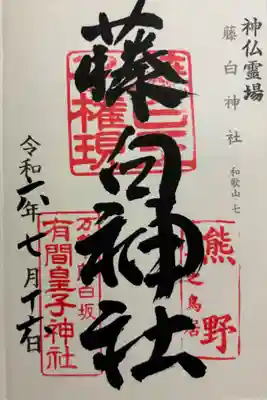 神仏霊場
藤白神社
和歌山 七
藤白神社
権現
熊野
之鳥居
有間皇子神社
令和六年 七月十六日